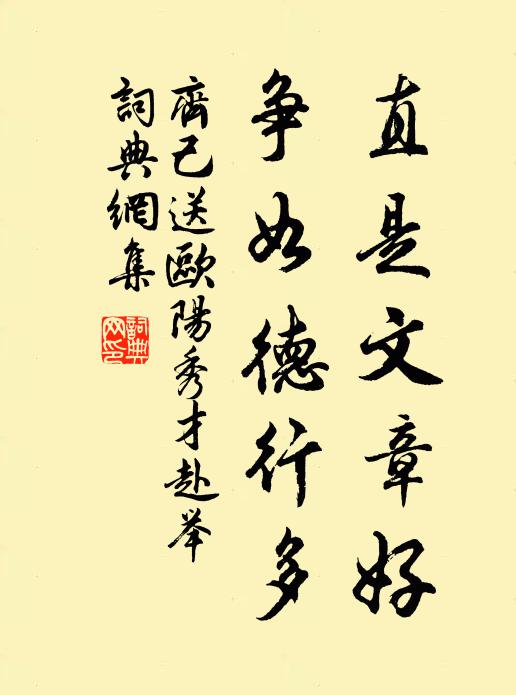 直是文章好
争如德行多
齊己送歐陽秀才赴举
詞典網集
詞典網印